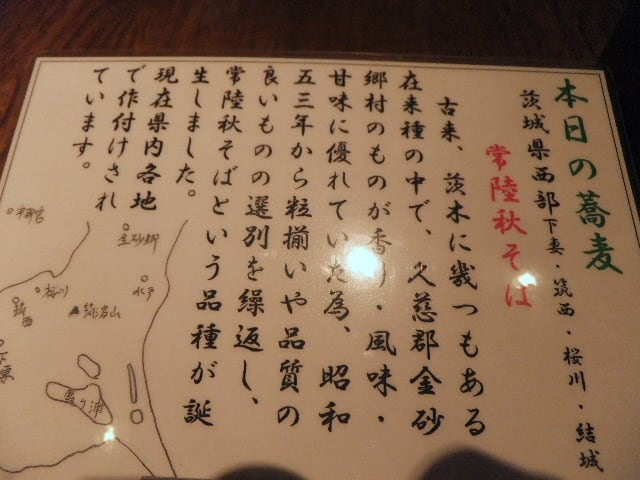 本日の蕎麦
茨城県西部下妻・筑西・桜川・結城
常陸秋そば
古来、茨木に幾つもある
在来種の中で、久慈郡金砂
郷村のものが香り・風味・
甘味に優れていた為、昭和
五三年から粒揃いや品質の
良いものの選別を繰返し、
常陸秋そばという品種が誕
生しました。
現在県内各地
で作付けされ
ています。
金砂郷
水戸
桜川
筑波山
筑西
下妻
霞ヶ浦